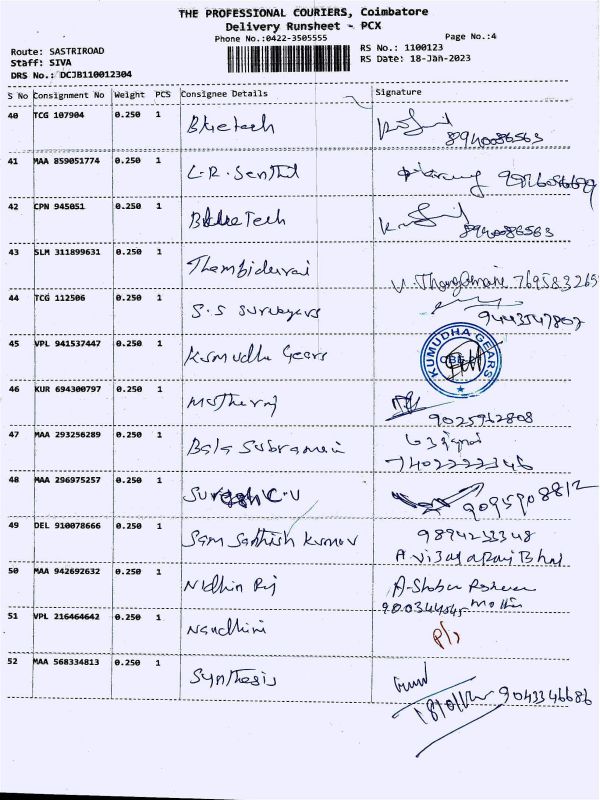 THE PROFESSIONAL COURIERS, Coimbatore
Delivery Runsheet - PCX
Phone No.:0422-3505555
Page No.:4
Route: SASTRIROAD
RS No.: 1100123
Staff: SIVA
RS Date: 18-Jan-2023
DRS No.: DCJB110012304
S No Consignment No Weight PCS Consignee Details Signature
40 TCG 107904 0.250 1 Bluetech
8940086563
41 MAA 859051774 0.250 1 L.R. Senthil
42 CPN 945051 0.250 1 BlueTech
8940086563
43 SLM 311899631 0.250 1 Thambidurai
769583265
44 TCG 112506 0.250 1 S.S Surveyors
9443547807
45 VPL 941537447 0.250 1 Kumudha Gears
KUMUDHA GEARS
CBE
46 KUR 694300797 0.250 1 Mutheraj
9025962808
47 MAA 293256289 0.250 1 Bala Subramani
7402222346
48 MAA 296975257 0.250 1 Suresh C.V
9095908812
49 DEL 910078666 0.250 1 Sam Santhish Kumar
9894233348
A.Vijayaraj Bhai
50 MAA 942692632 0.250 1 Nidhin Raj
51 VPL 216464642 0.250 1 Nandhini
P/s
52 MAA 568334813 0.250 1 Synthesis
9043346686